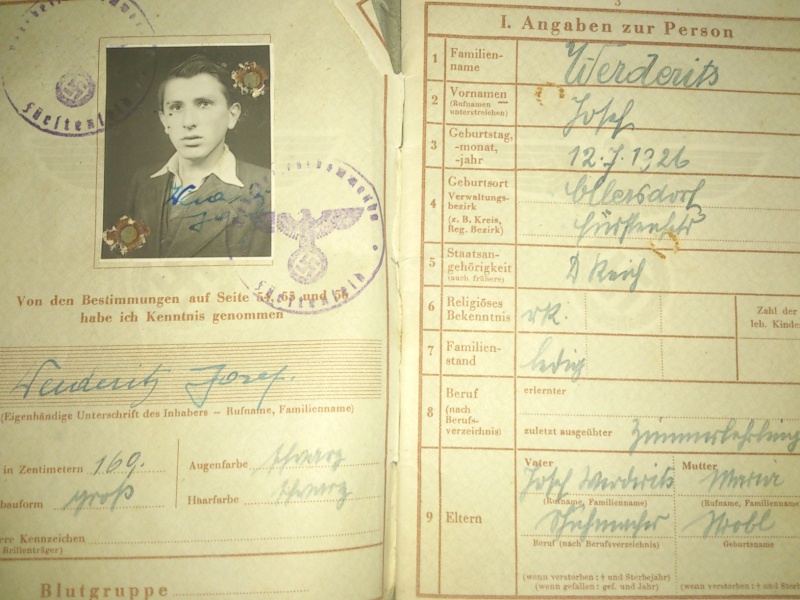 Fürstenfeld
Werderits
Josef
Fürstenfeld
Von den Bestimmungen auf Seite 54, 55 und 56
habe ich Kenntnis genommen
Werderits Josef.
(Eigenhändige Unterschrift des Inhabers – Rufname, Familienname)
in Zentimetern 169.
Augenfarbe schwarz
bauform groß
Haarfarbe schwarz
ere Kennzeichen
Brillenträger)
Blutgruppe
3
I. Angaben zur Person
1 Familien-
name
Werderits
2 Vornamen
(Rufnamen
unterstreichen)
Josef
3 Geburtstag,
-monat,
-jahr
12.7.1926
4 Geburtsort
Verwaltungs-
bezirk
(z. B. Kreis,
Reg. Bezirk)
Ollersdorf
Fürstenfeld
5 Staatsan-
gehörigkeit
(auch frühere)
D Reich
6 Religiöses
Bekenntnis
rk.
Zahl der
leb. Kinde
7 Familien-
stand
ledig
8 Beruf
(nach
Berufs-
verzeichnis)
erlernter
zuletzt ausgeübter Zimmerlehrling
9 Eltern
Vater
Josef Werderits
(Rufname, Familienname)
Schuhmacher
Beruf (nach Berufsverzeichnis)
(wenn verstorben: † und Sterbejahr)
(wenn gefallen: gef. und Jahr)
Mutter
Maria
(Rufname, Familienname
Strobl
Geburtsname
(wenn verstorben: † und Sterb